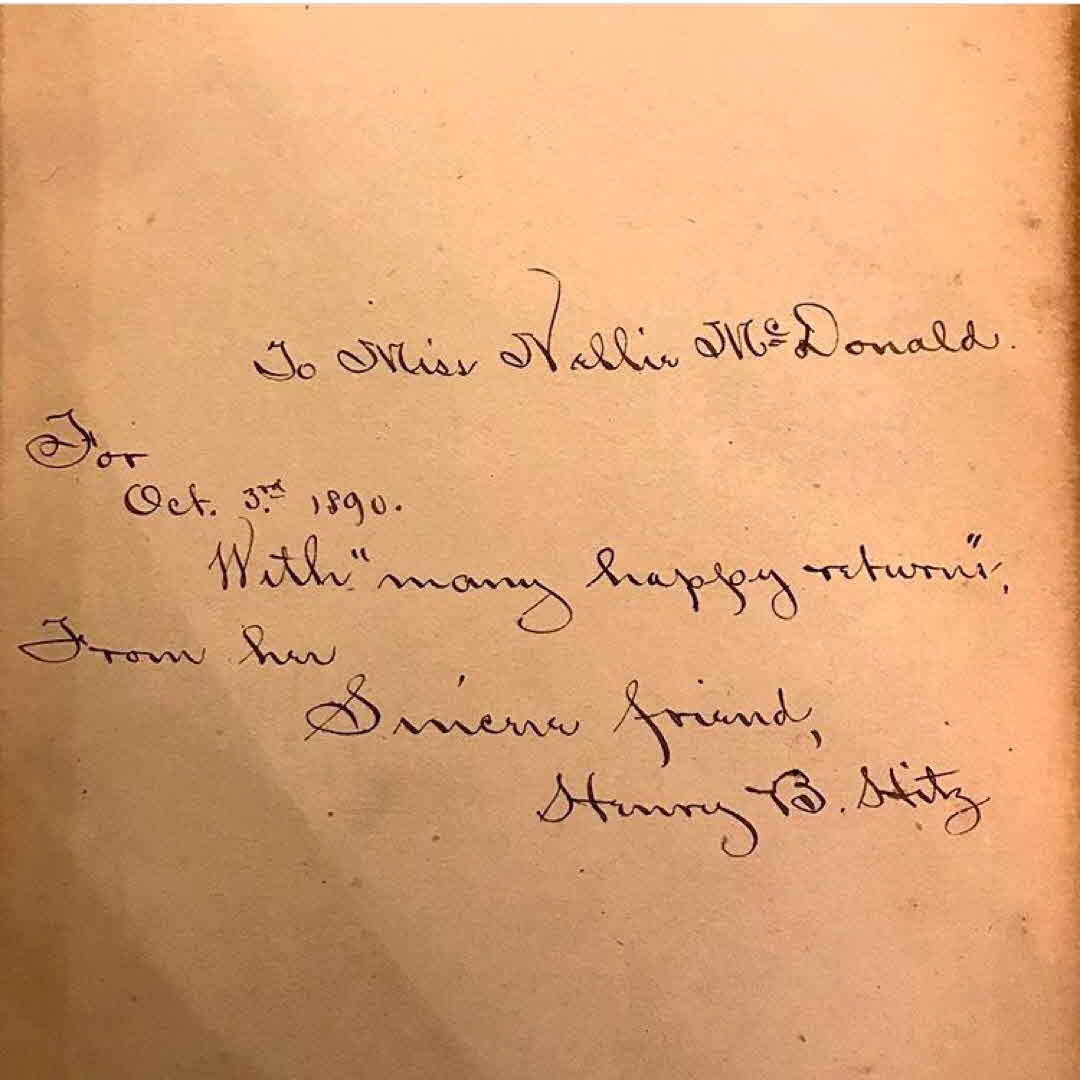 To Miss Nellie McDonald.
For
Oct. 3rd 1890.
With "many happy returns",
From her
Sincere friend,
Henry B. Hitz